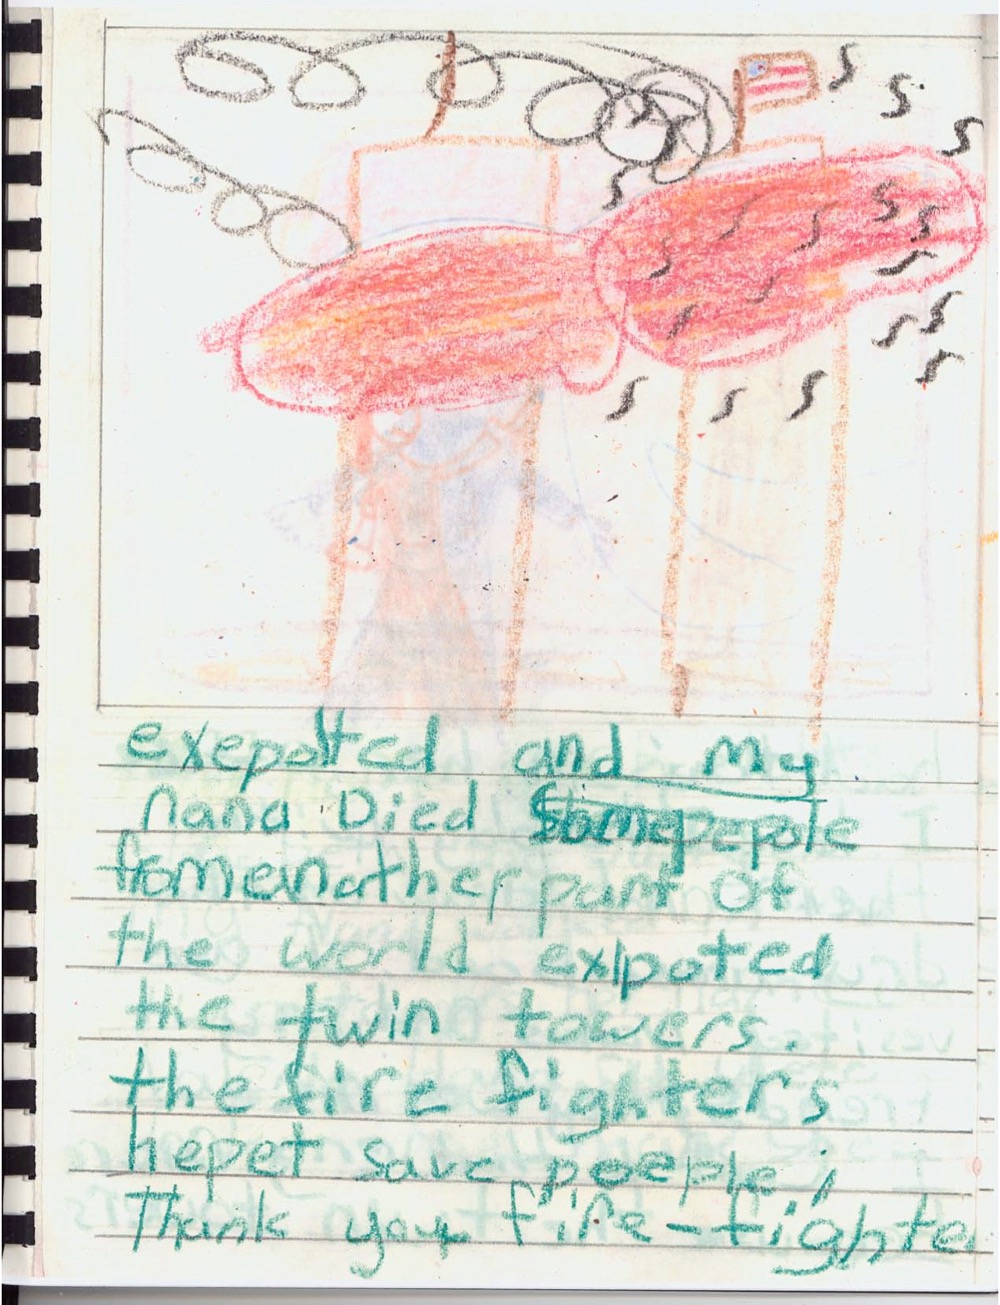 exepolted and My
nana Died Somepepole
fromeanather part of
the world exlpoted
the twin towers.
the fire fighters
hepet save poeple,i
Thank you fire-fighte